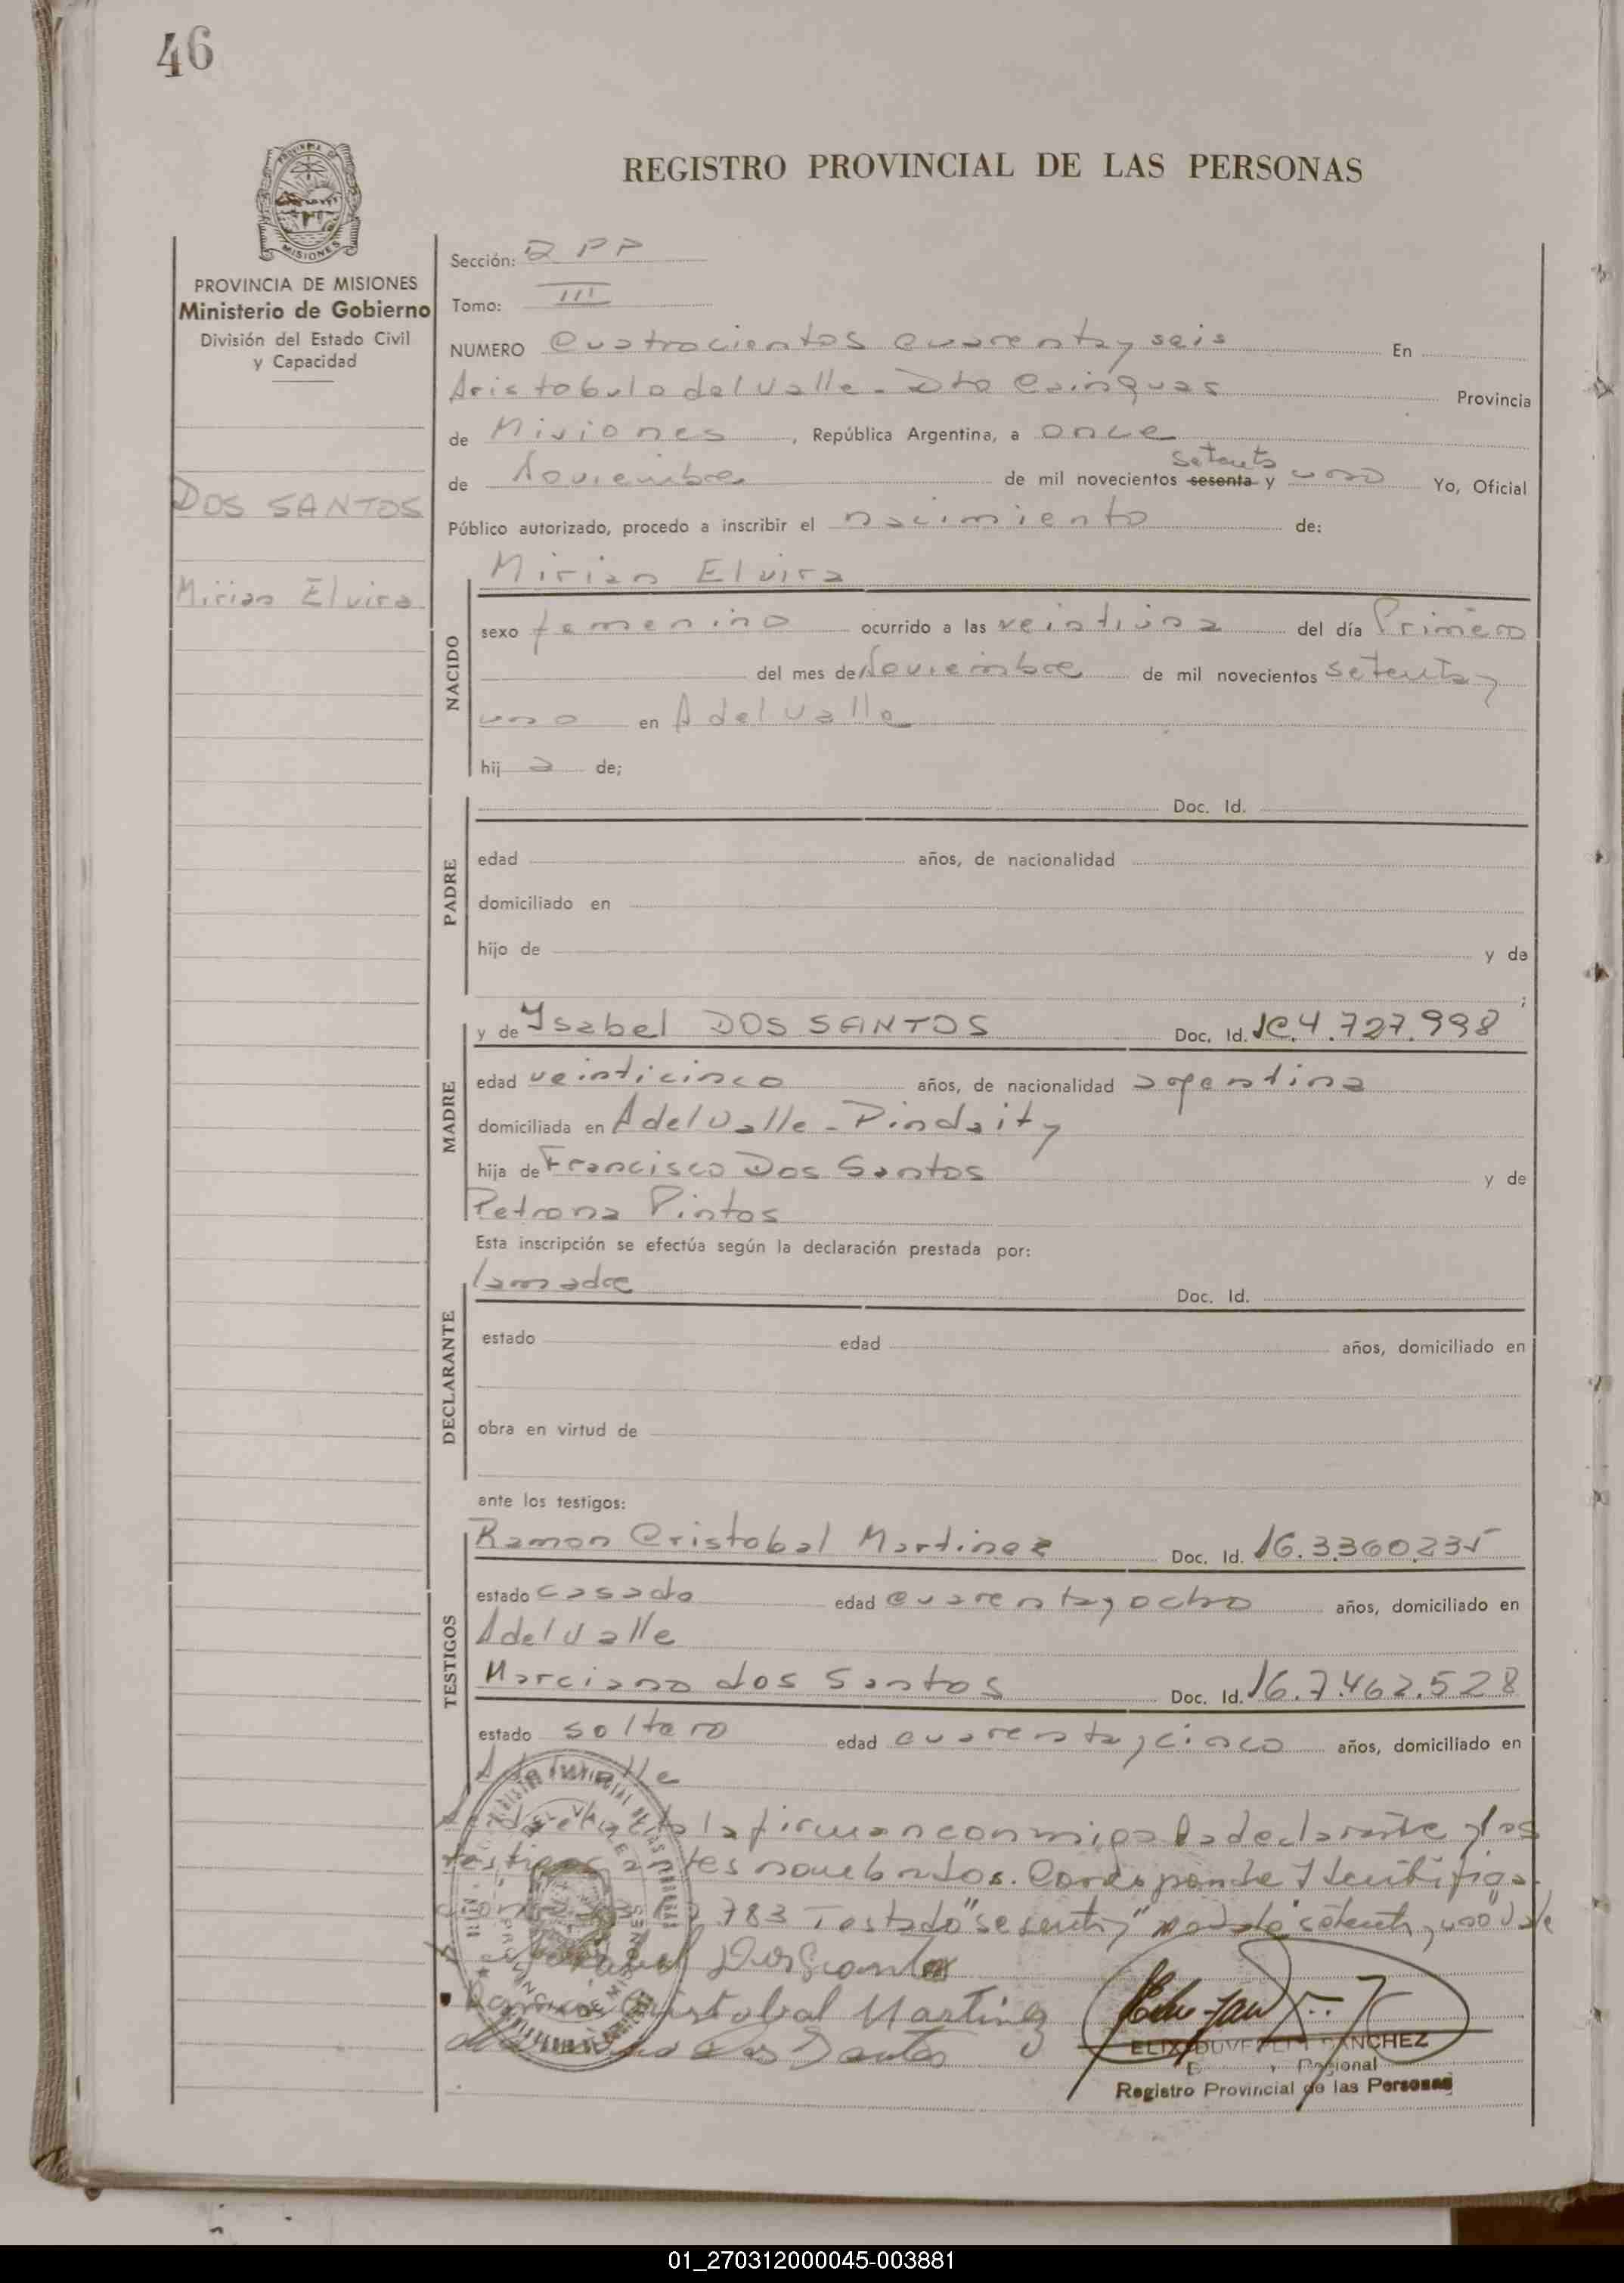 46
REGISTRO PROVINCIAL DE LAS PERSONAS
PROVINCIA DE MISIONES
Ministerio de Gobierno
División del Estado Civil
y Capacidad
DOS SANTOS
Mirian Elvira
Sección: RPP
Tomo: III
NUMERO Cuatrocientos cuarenta y seis En
Aristobulo del Valle - Dto Cainguas Provincia
de Misiones, República Argentina, a once
setenta
de Noviembre de mil novecientos sesenta y uno Yo, Oficial
Público autorizado, procedo a inscribir el nacimiento de:
NACIDO
Mirian Elvira
sexo femenino ocurrido a las veintiuna del día Primero
del mes de Noviembre de mil novecientos setenta y
uno en A del Valle
hija de;
PADRE
Doc. Id.
edad años, de nacionalidad
domiciliado en
hijo de y de
;
MADRE
y de Ysabel DOS SANTOS Doc. Id. 4.727.998
edad veinticinco años, de nacionalidad argentina
domiciliada en A del Valle - Pindaity
hija de Francisco Dos Santos y de
Petrona Pintos
Esta inscripción se efectúa según la declaración prestada por:
DECLARANTE
la madre Doc. Id.
estado edad años, domiciliado en
obra en virtud de
ante los testigos:
TESTIGOS
Ramon Cristobal Martinez Doc. Id. 16.3.360.235
estado casado edad cuarenta y ocho años, domiciliado en
A del Valle
Marciano dos Santos Doc. Id. 16.7.462.528
estado soltero edad cuarenta y cinco años, domiciliado en
A del Valle
la firman conmigo la declarante y los
testigos antes nombrados. Corresponde
783 Testado "sesenta y" setenta y uno" Vale
Ysabel Dos Santos
Ramon Cristobal Martinez
Marciano dos Santos
SANCHEZ
Regional
Registro Provincial de las Personas
01_270312000045-003881